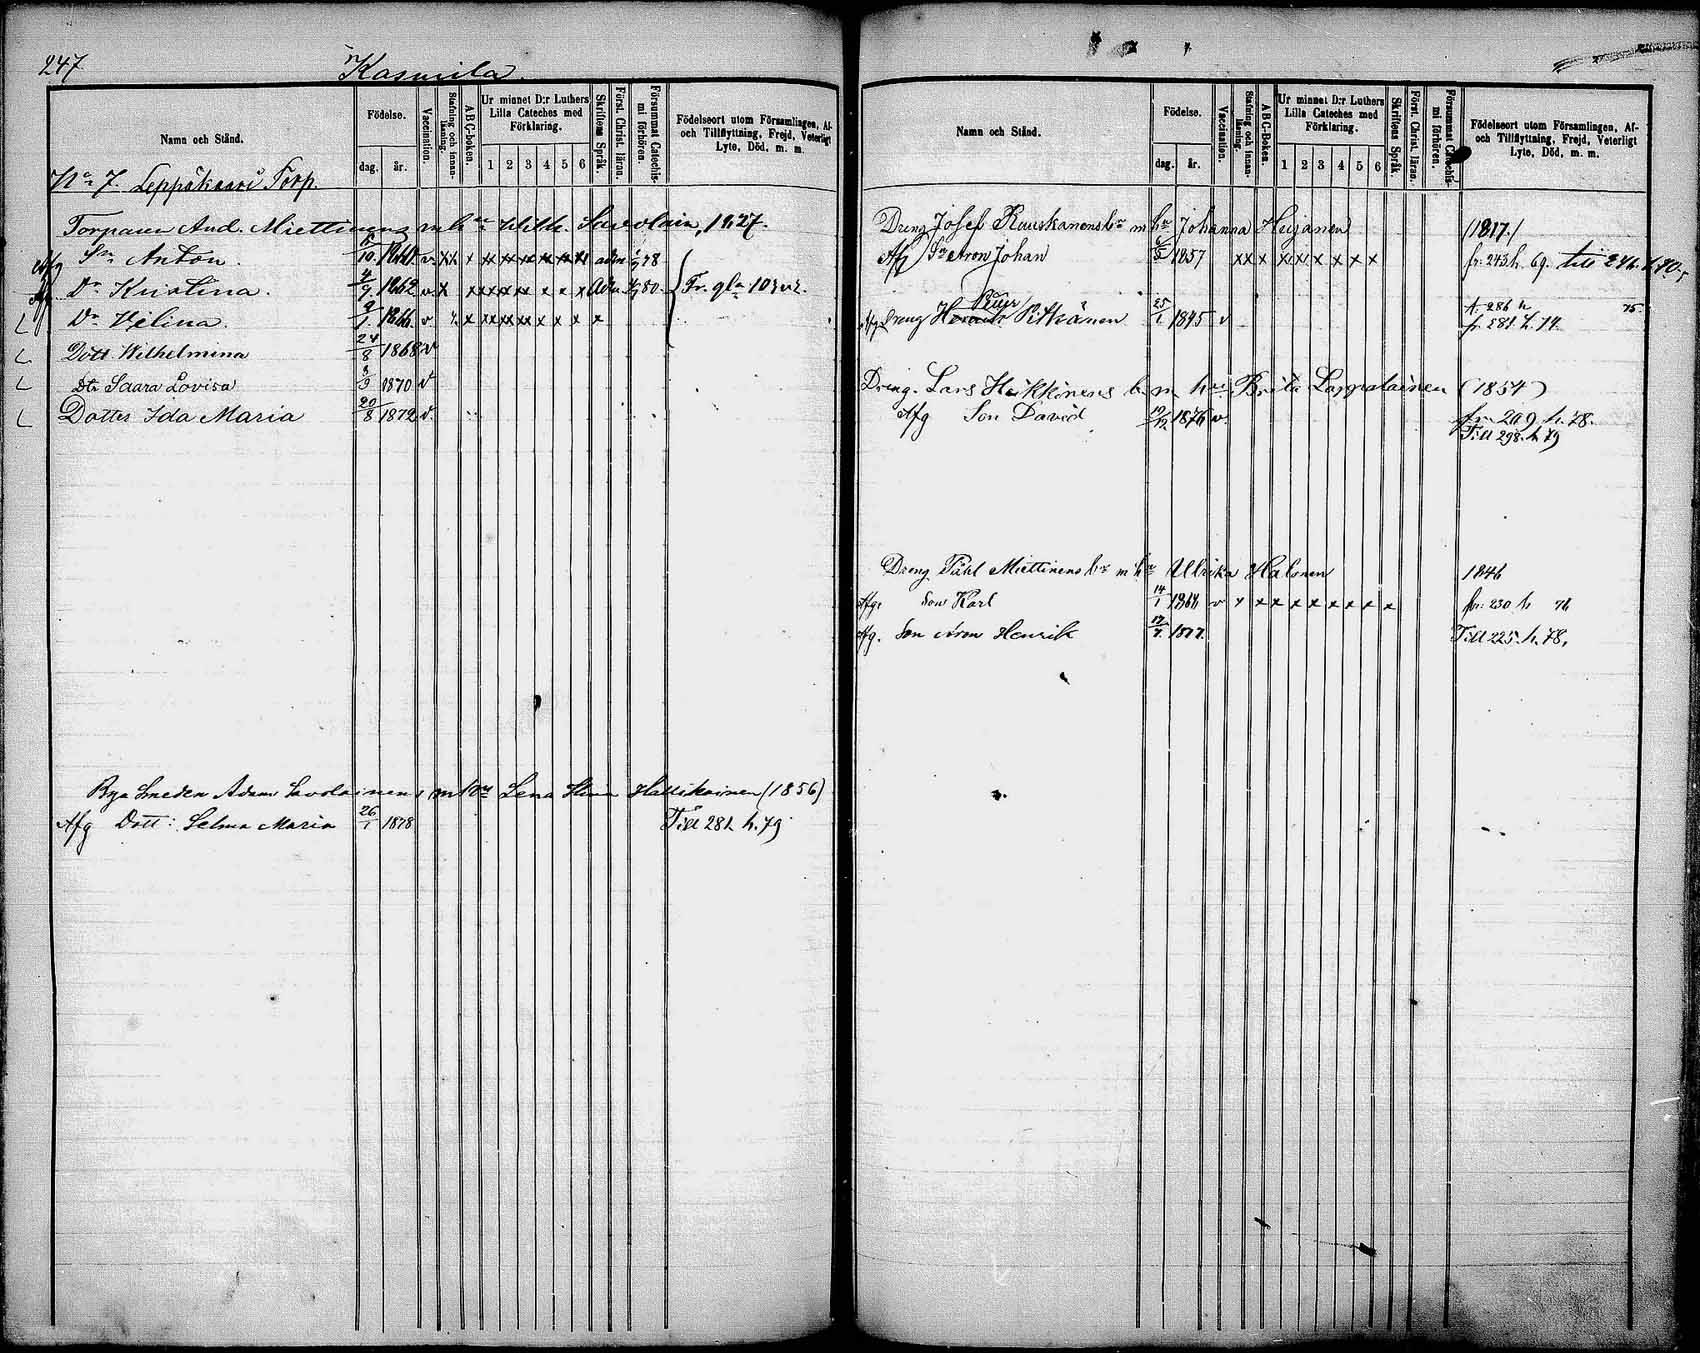 247
Kasurila.
Namn och Stånd.
Födelse.
dag. år.
Vaccination.
Stafning och innanläsning.
A B C-boken.
Ur minnet D:r Luthers Lilla Cateches med Förklaring.
1 2 3 4 5 6
Skriftens Språk.
Först. Christ. läran.
Försummat Catechismi förhören.
Födelseort utom Församlingen, Af- och Tillflyttning, Frejd, Veterligt Lyte, Död, m. m.
No 7. Leppäkaari Torp.
Torparen And. Miettinens m hu Wilh. Savolain, 1827.
Afg Sn Anton. v x x x adm 78
Afg Dr Kristina. 4/9 1862 v x Adm 80. Fr. gla 103
L Dr Vilina. v x
L Dott. Wilhelmina 24/8 1868 v
L Dtr Saara Lovisa 3/9 1870 v
L Dotter Ida Maria 20/8 1872 v.
Bya Smeden Adam Savolainens m hru Lena Stina Hallikainen (1856)
Afg Dott: Selma Maria 26/1 1878 Till 281 h. 79
Namn och Stånd.
Födelse.
dag. år.
Vaccination.
Stafning och innanläsning.
A B C-boken.
Ur minnet D:r Luthers Lilla Cateches med Förklaring.
1 2 3 4 5 6
Skriftens Språk.
Först. Christ. läran.
Försummat Catechismi förhören.
Födelseort utom Församlingen, Af- och Tillflyttning, Frejd, Veterligt Lyte, Död, m. m.
Dreng Josef Ruuskanens br m hu Johanna Hujanen (1817.)
Afg Sn Aron Johan 1857 x x x x x x x x x fr. 243 h. 69. till 246 h. 70.
Afg Dreng Petter Pitkänen 25/1 1845 v fr. 281. h. 74. 75.
Dreng. Lars Heikkinens b. m. hu Brita Lappalainen (1854)
Afg Son David 19/12 1876 v. fr. 209 h. 78.
Till 298. h. 79
Dreng Påhl Miettinens br m hu Ulrika Halonen 1846
Afg. Son Karl 14/1 1868 v x x x x x x x x x fr. 230 h 76
Afg. Son Aron Henrik 1877. Till 225. h. 78,